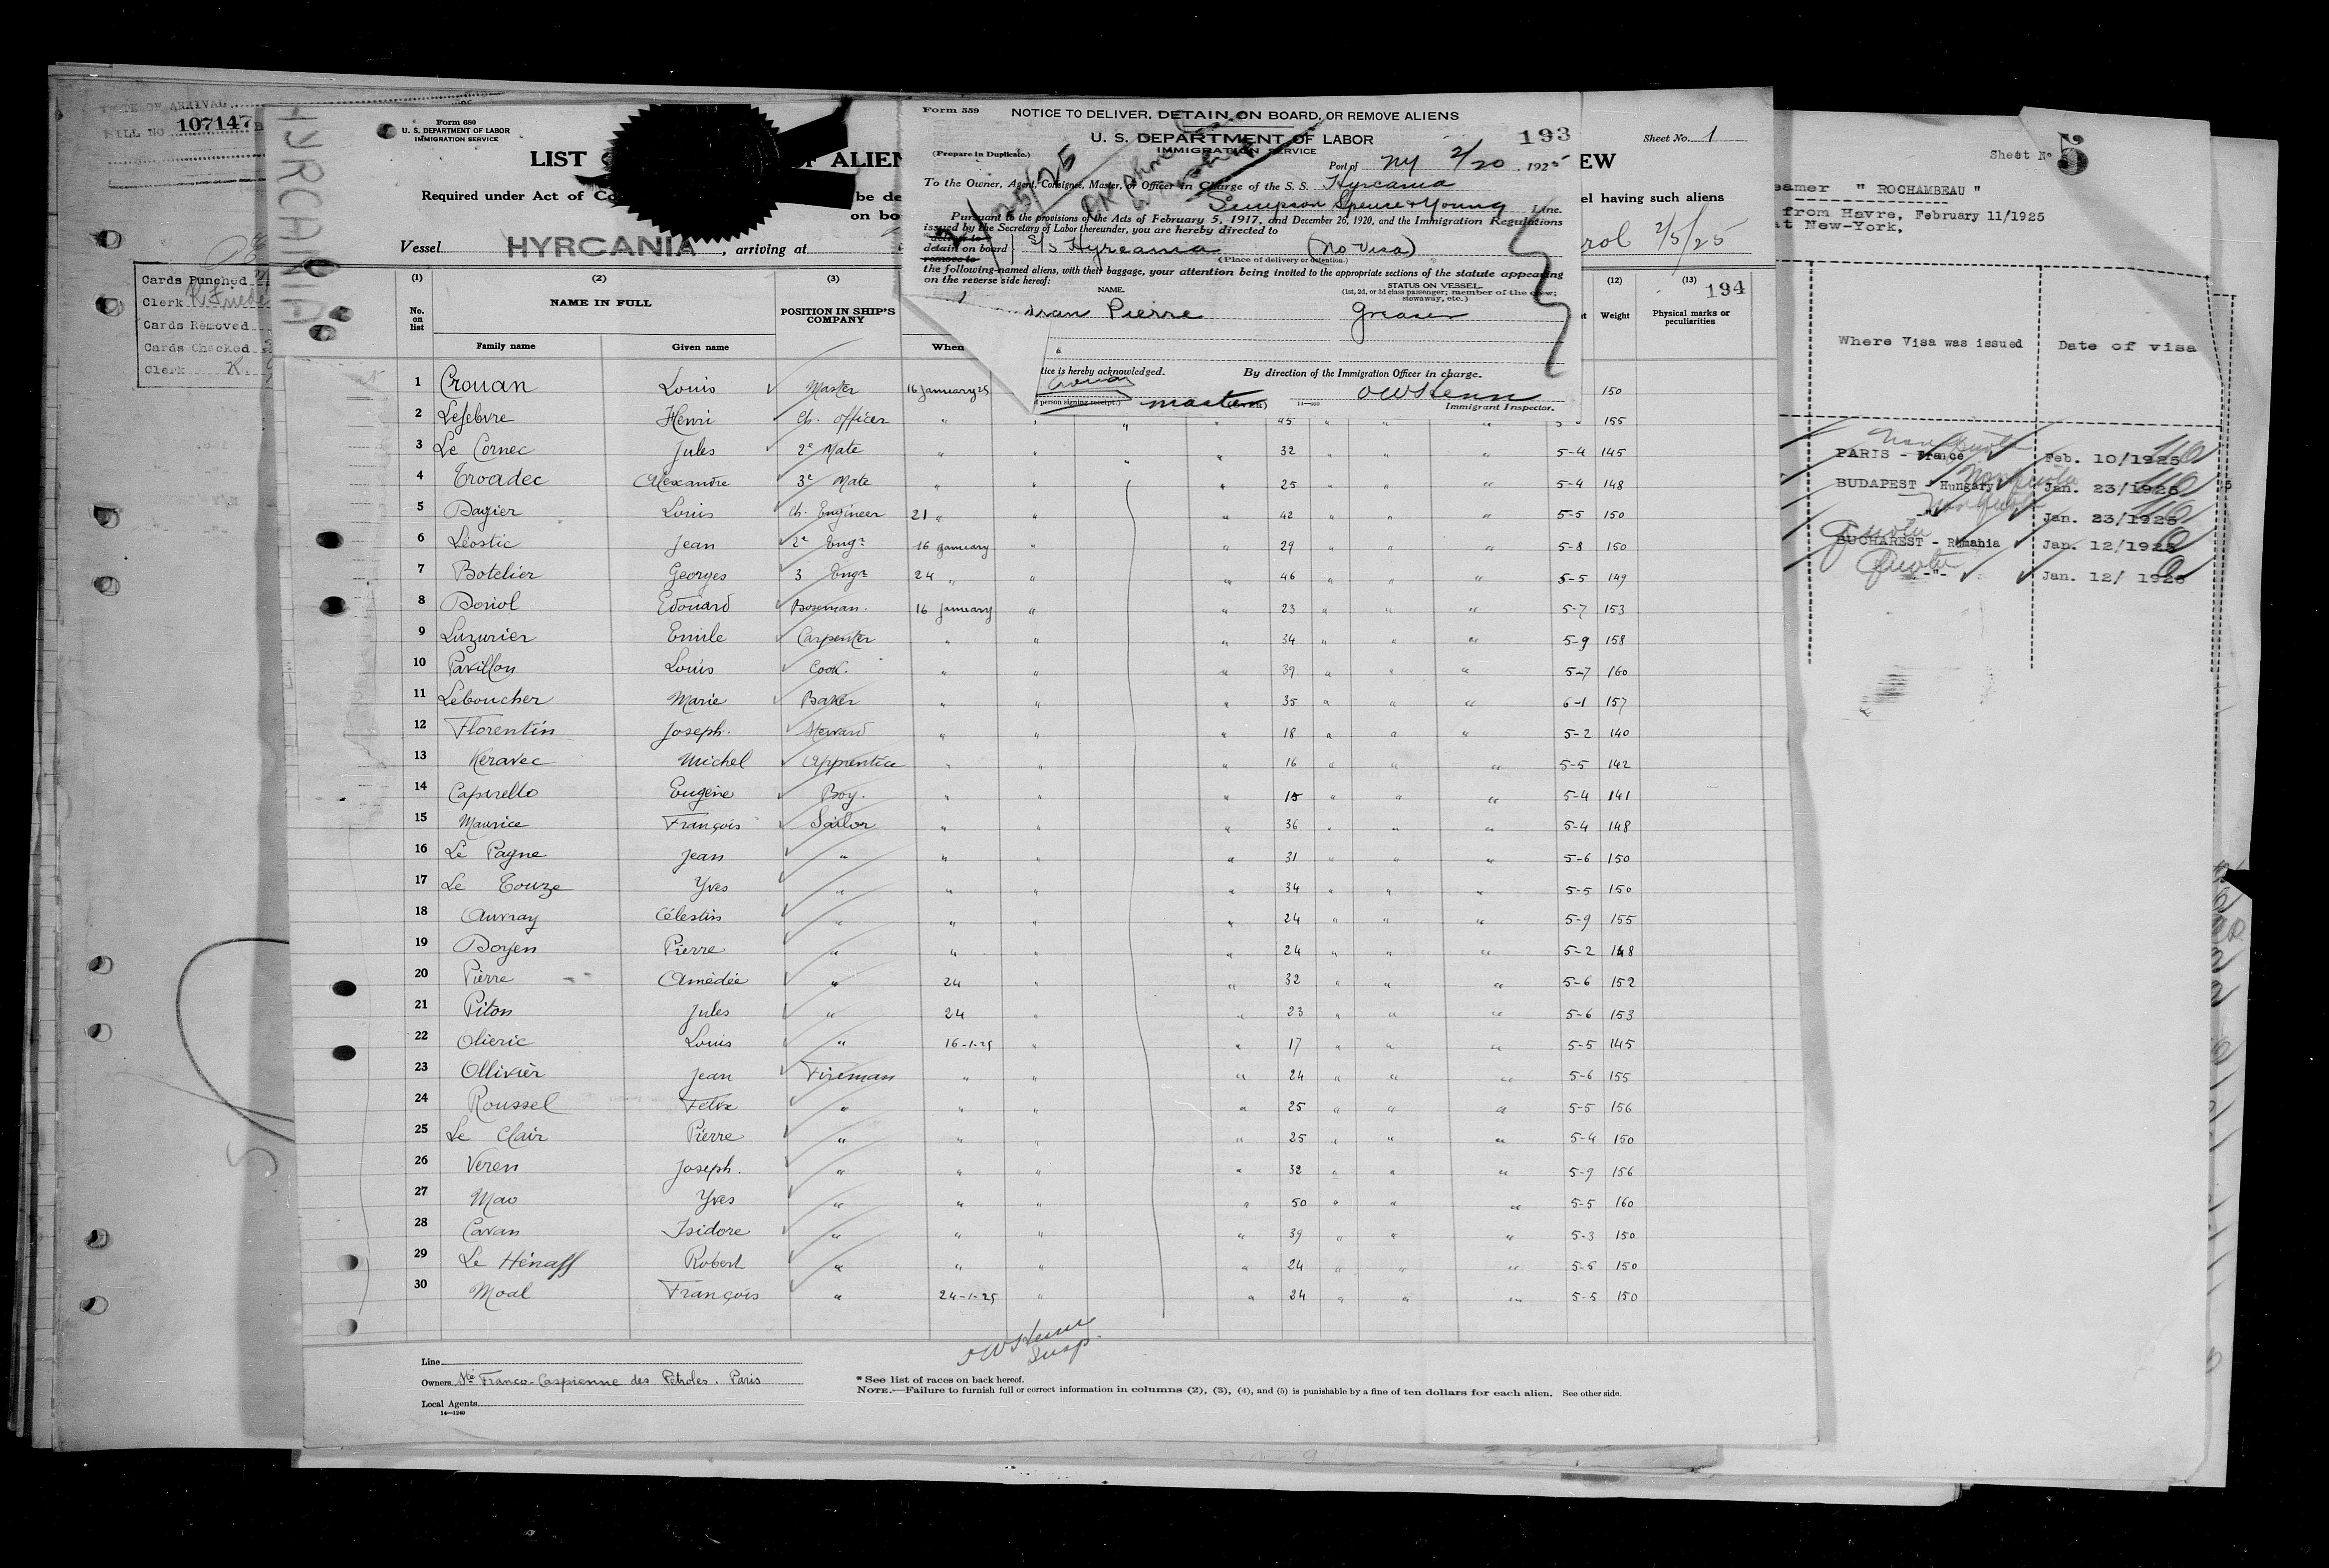 DATE OF ARRIVAL
BILL NO. 107147 B
Cards Punched
Clerk
Cards Removed
Cards Checked
Clerk K.
HYRCANIA
Form 680
U. S. DEPARTMENT OF LABOR
IMMIGRATION SERVICE
LIST OF ALIEN EW
Sheet No. 1
Required under Act of Co be de el having such aliens
on bo
Vessel HYRCANIA, arriving at rol 2/5/25
Form 559
NOTICE TO DELIVER, DETAIN ON BOARD, OR REMOVE ALIENS
U. S. DEPARTMENT OF LABOR 193
IMMIGRATION SERVICE
(Prepare in Duplicate.)
Port of NY 2/20, 1925
To the Owner, Agent, Consignee, Master, or Officer in Charge of the S. S. Hyrcania
Simpson Spence & Young Line.
Pursuant to the provisions of the Acts of February 5, 1917, and December 26, 1920, and the Immigration Regulations
issued by the Secretary of Labor thereunder, you are hereby directed to
deliver to
detain on board S/S Hyrcania (No Visa)
remove to (Place of delivery or detention.)
the following-named aliens, with their baggage, your attention being invited to the appropriate sections of the statute appearing
on the reverse side hereof:
NAME. STATUS ON VESSEL.
(1st, 2d, or 3d class passenger; member of the crew;
stowaway, etc.)
dran Pierre Greaser
tice is hereby acknowledged. By direction of the Immigration Officer in charge.
Crouan
person signing receipt.) master OWHenn
14—660 Immigrant Inspector.
(1) (2) (3) (12) (13) 194
No. on list NAME IN FULL POSITION IN SHIP'S COMPANY Weight Physical marks or peculiarities
Family name Given name When
1 Crouan Louis Master 16 January 25 150
2 Lefebvre Henri Ch. Officer " " " " 45 " " " 155
3 Le Cornec Jules 2e Mate " " " " 32 " " " 5-4 145
4 Troadec Alexandre 3e Mate " " " 25 " " " 5-4 148
5 Dagier Louis Ch. Engineer 21 " " " 42 " " " 5-5 150
6 Léostic Jean 2e Engr 16 January " " 29 " " " 5-8 150
7 Botelier Georges 3 Engr 24 " " " 46 " " " 5-5 149
8 Doriol Edouard Boseman. 16 January " " 23 " " " 5-7 153
9 Luzurier Emile Carpenter " " " 34 " " " 5-9 158
10 Pavillon Louis Cook. " " " 39 " " " 5-7 160
11 Leboucher Marie Baker " " " 35 " " " 6-1 157
12 Florentin Joseph. Steward " " " 18 " " " 5-2 140
13 Keravec Michel Apprentice " " " 16 " " " 5-5 142
14 Capirello Eugène Boy. " " " 15 " " " 5-4 141
15 Maurice François Sailor " " " 36 " " " 5-4 148
16 Le Payne Jean " " " " 31 " " " 5-6 150
17 Le Touze Yves " " " " 34 " " " 5-5 150
18 Auvray Célestin " " " " 24 " " " 5-9 155
19 Doyen Pierre " " " " 24 " " " 5-2 148
20 Pierre Amédée " 24 " " 32 " " " 5-6 152
21 Piton Jules " 24 " " 23 " " " 5-6 153
22 Olieric Louis " 16-1-25 " " 17 " " " 5-5 145
23 Ollivier Jean Fireman " " " 24 " " " 5-6 155
24 Roussel Félix " " " " 25 " " " 5-5 156
25 Le Clair Pierre " " " " 25 " " " 5-4 150
26 Veren Joseph. " " " " 32 " " " 5-9 156
27 Mao Yves " " " " 50 " " " 5-5 160
28 Cavan Isidore " " " " 39 " " " 5-3 150
29 Le Hénaff Robert " " " " 24 " " " 5-5 150
30 Moal François " 24-1-25 " " 24 " " " 5-5 150
OWHenn
Insp.
Line
Owners Sté Franco-Caspienne des Pétroles. Paris
Local Agents
14—1240
* See list of races on back hereof.
NOTE.—Failure to furnish full or correct information in columns (2), (3), (4), and (5) is punishable by a fine of ten dollars for each alien. See other side.
Sheet No 5
eamer " ROCHAMBEAU "
from Havre, February 11/1925
at New-York,
Where Visa was issued Date of visa
Non Quota
PARIS - France Feb. 10/1925
Non Quota
BUDAPEST - Hungary Jan. 23/1925
Non Quota
-"- Jan. 23/1925
Quota
BUCHAREST - Romania Jan. 12/1925
Quota
-"- Jan. 12/ 1925